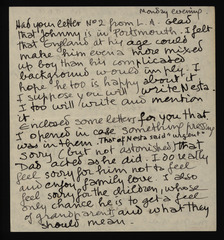 Monday evening
Had your letter No 2 from L. A. Glad
that Johnny is in Portsmouth. I felt
that England at his age could
make him even a more mixed
up boy than his complicated
background would imply. I
hope he too is happy about it.
I suppose you will write Nesta.
I too will write and mention
it
Enclosed some letters for you that
I opened in case something pressing
was in them. That of Nesta said "urgent".
Sorry (but not astonished) that
Dad acted as he did. I do really
feel sorry for him not to feel
and enjoy family love. I also
feel sorry for the children, whose
only chance he is to get a feel
of grandparents and what they
should mean.